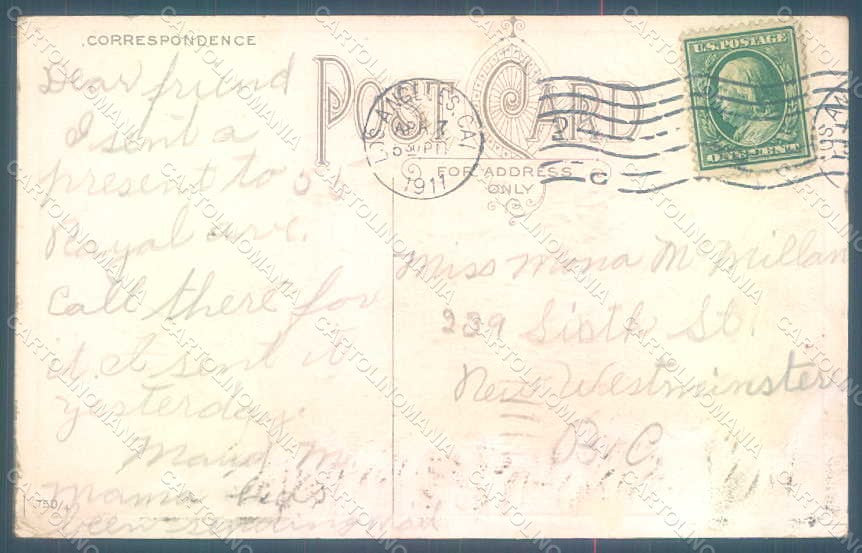 CORRESPONDENCE
POST CARD
FOR ADDRESS
ONLY
U.S. POSTAGE
ONE CENT
LOS ANGELES, CAL
APR 7
1911
2
C
Dear friend
I sent a
present to
Royal ave.
Call there for
it. I sent it
yesterday.
Maud M
mama
been
Miss Mona McMillan
239 Sixth St.
New Westminster
B.C.
750/
CARTOLINOMANIA